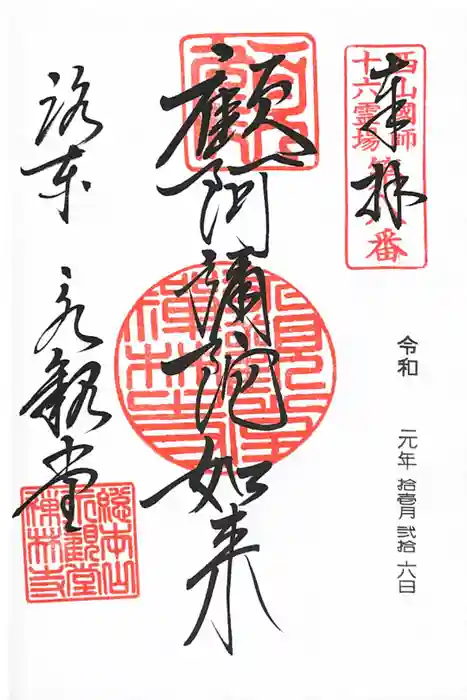 奉拝
西山國師
十六霊場
番
令和 元年 拾壱月 弐拾 六日
顧阿彌陀如来
洛東 永観堂
総本山
永観堂
禅林寺